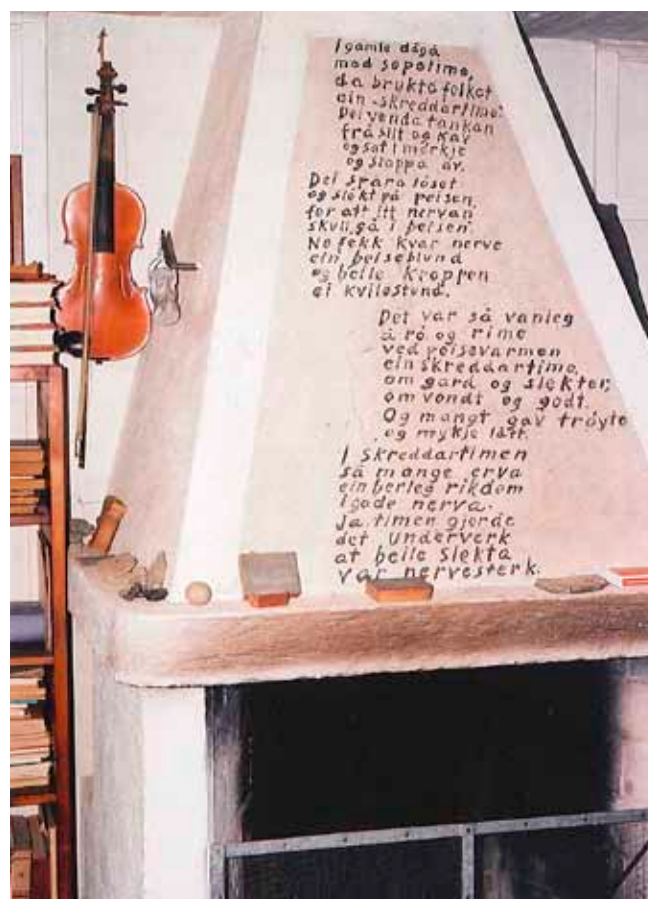 I gamle dågå
med sopelime,
då brukta folket
ein "skreddartime".
Dei venda tankan
frå slit og kav
og sat i mørkje
og slappa av.
Dei spara ljoset
og sløkt på peisen,
for att itt nervan
skull gå i beisen.
No fekk kvar nerve
ein peiseblund
og heile kroppen
ei kvilestund.
Det var så vanleg
å ro og rime
ved peisevarmen
ein skreddartime,
om gard og slekter,
om vondt og godt.
Og mangt gav trøyte
og mykje lått.
I skreddartimen
så mange erva
ein herleg rikdom
i gode nerva.
Ja timen gjorde
det underverk
at heile slekta
var nervesterk.